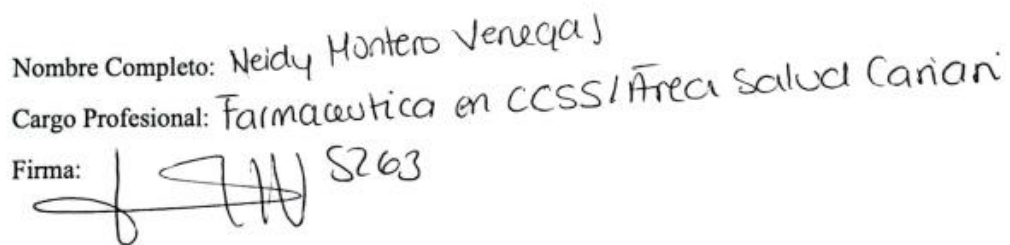 Nombre Completo: Neidy Montero Venegas
Cargo Profesional: Farmaceutica en CCSS/Área Salud Cariari
Firma: 5263